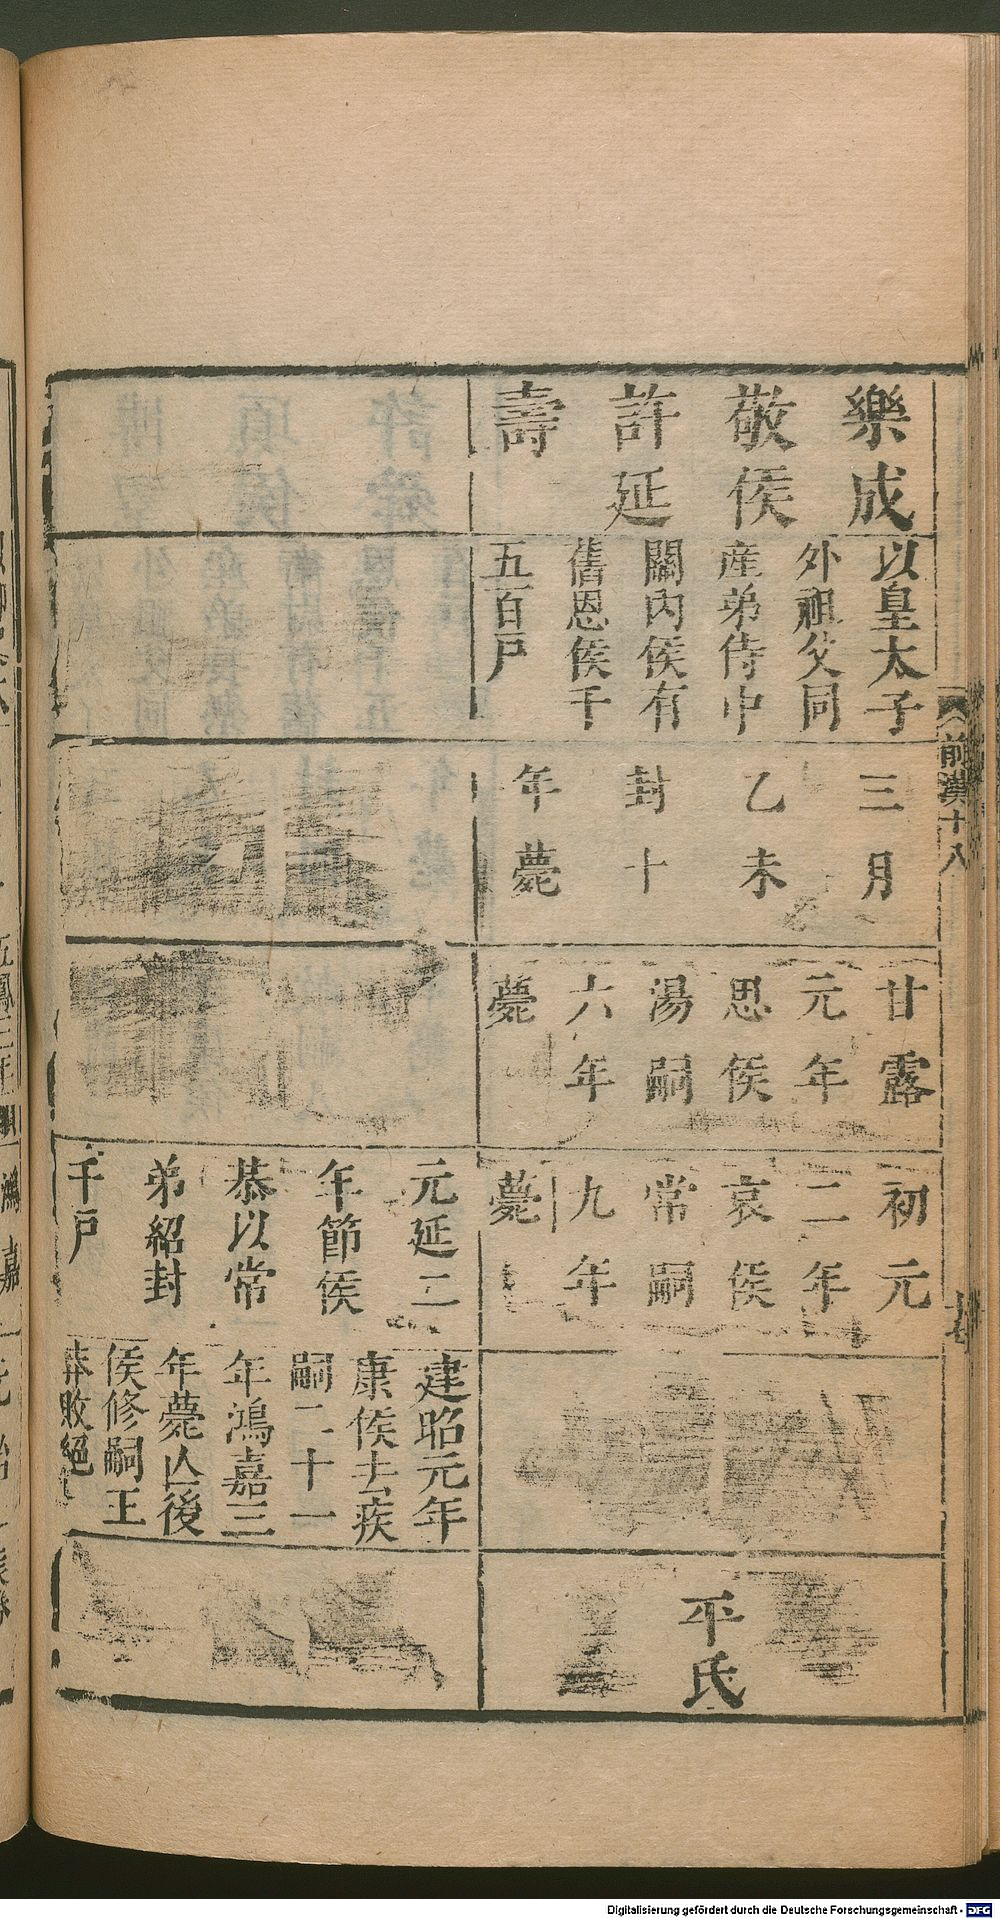 樂成
敬侯
許延
壽
以皇太子
外祖父同
産弟侍中
關内侯有
舊恩侯千
五百戸
三月
乙未
封十
年薨
甘露
元年
思侯
湯嗣
六年
薨
初元
二年
哀侯
常嗣
九年
薨
平氏
元延二
年節侯
恭以常
弟紹封
千戸
建昭元年
康侯去疾
嗣二十一
年鴻嘉三
年薨亾後
侯修嗣王
莽敗絕
前漢十八
Digitalisierung gefördert durch die Deutsche Forschungsgemeinschaft - DFG